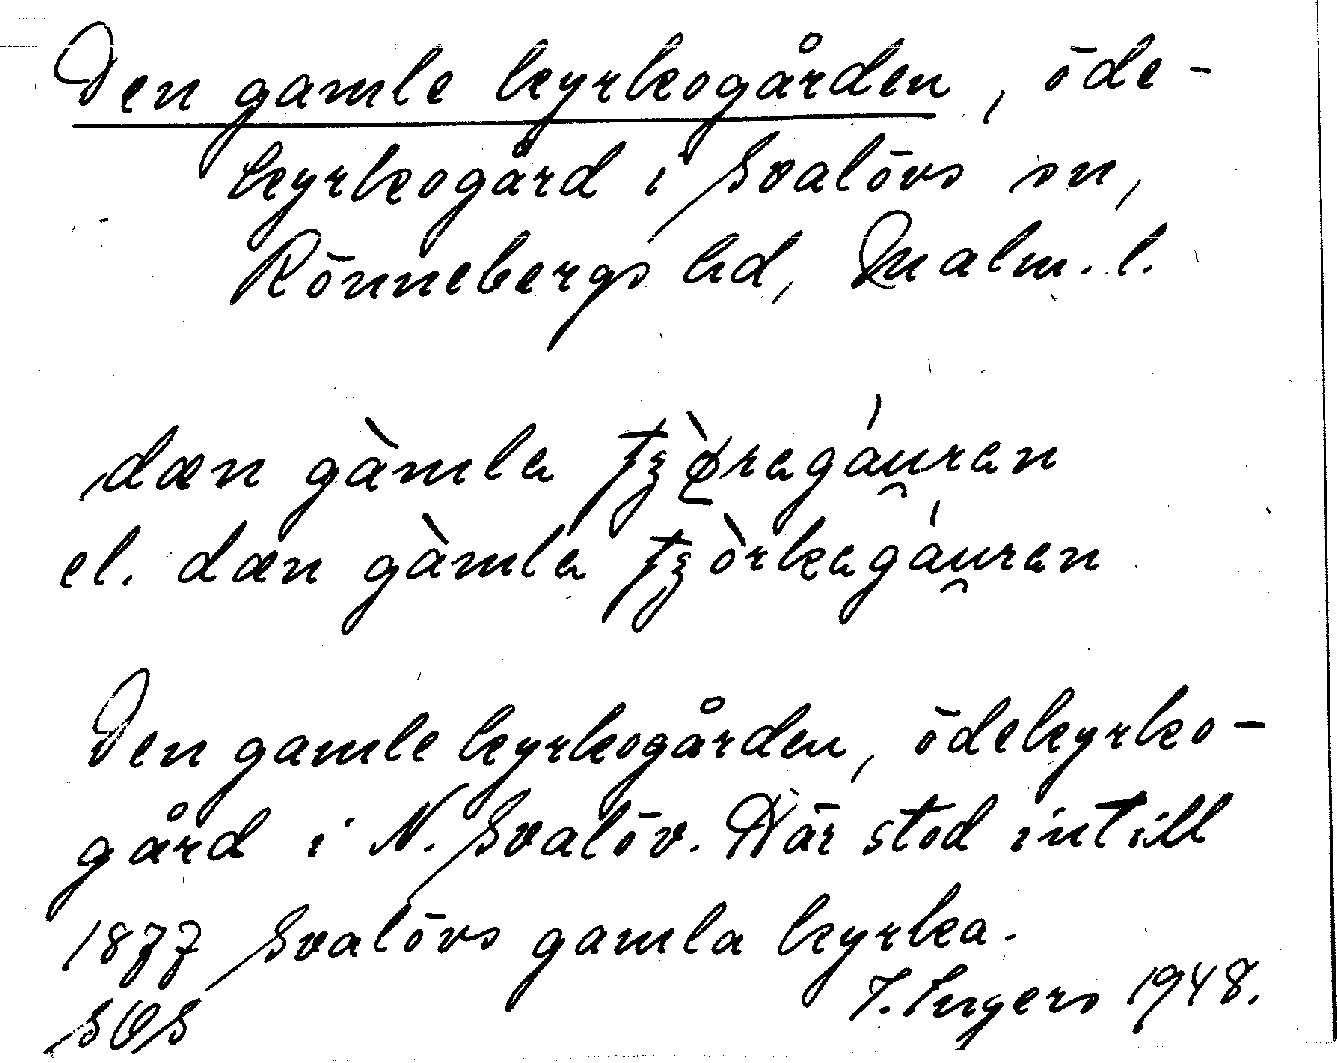 Den gamle kyrkogården, öde-
kyrkogård i Svalövs sn,
Rönnebergs hd, Malm. l.
dæn gàmla
el. dæn gàmla
Den gamle kyrkogården, ödekyrko-
gård i N. Svalöv. Här stod intill
1877 Svalövs gamla kyrka.
I. Ingers 1948.
SOS